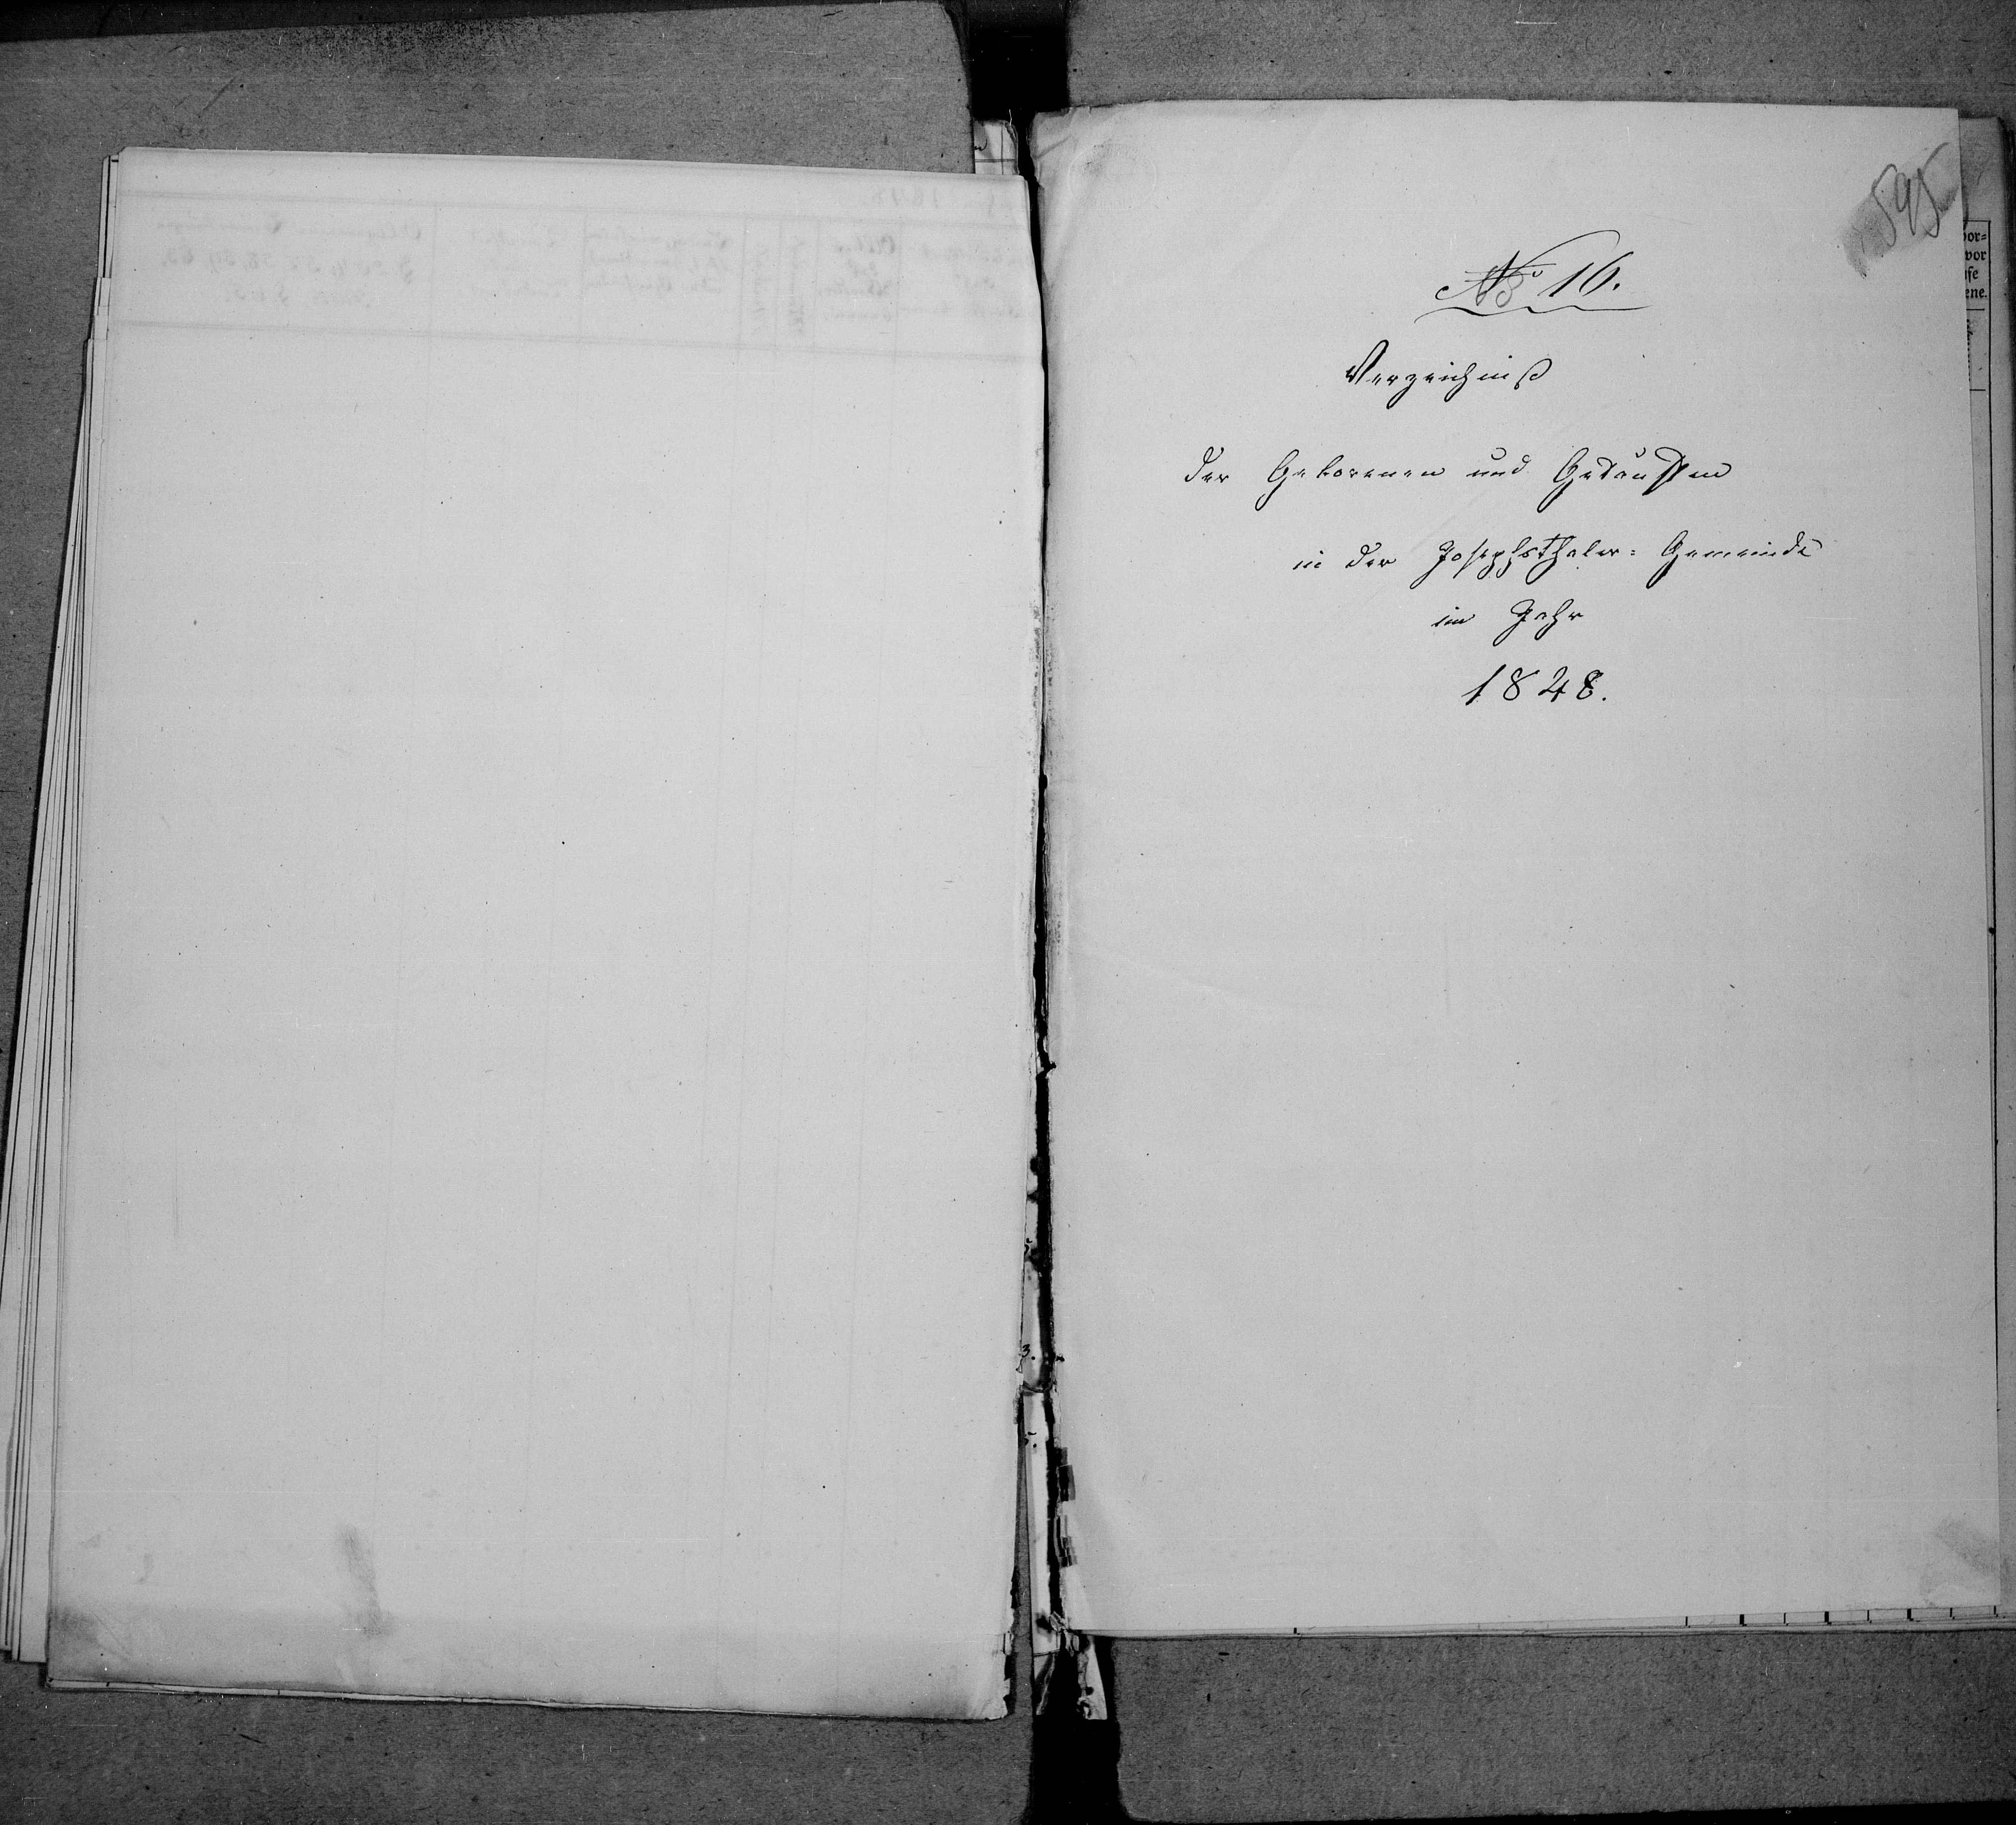 595
№ 16.
Verzeichniß
der Geborenen und Getauften
in der Josephsthaler= Gemeinde
im Jahr
1848.
vor=
vor
ene.